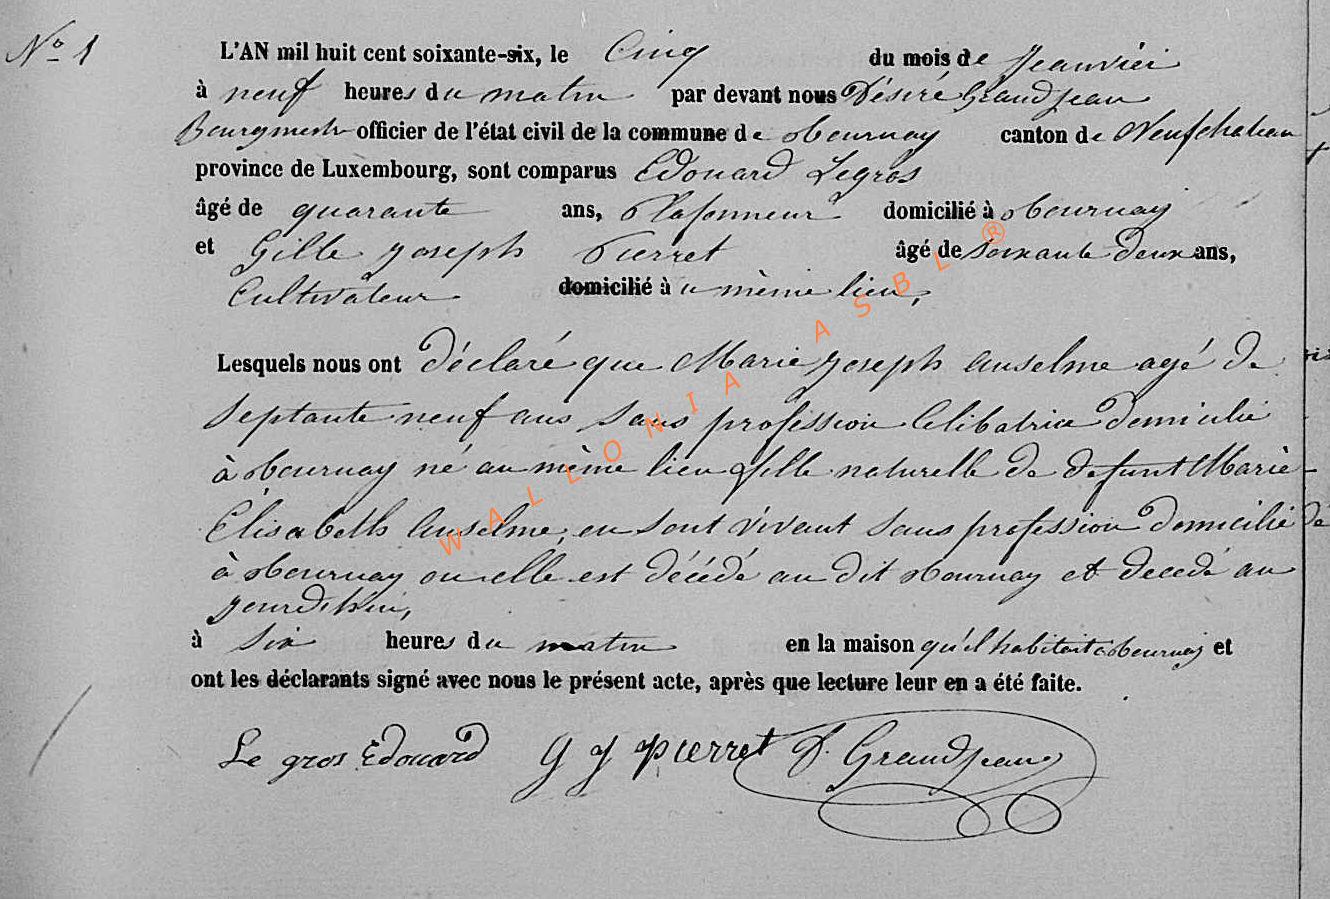 No 1
L'AN mil huit cent soixante-six, le Cinq du mois de Jeanvier
à neuf heures du matin par devant nous Désiré Grandjean
Bourgmestre officier de l'état civil de la commune de Tournay canton de Neufchateau
province de Luxembourg, sont comparus Edouard Legros
âgé de quarante ans, Plafonneur domicilié à Tournay
et Gille Joseph Pierret âgé de soixante deux ans,
Cultivateur domicilié à u mème lieu,
Lesquels nous ont déclaré que Marie Joseph Anselme agé de
septante neuf ans sans profession Celibatrice domicilié
à Tournay né au mème lieu fille naturelle de defunt Marie
Elisabeth Anselme, en sont vivant sans profession domicilié
à Tournay ou elle est décédé au dit Tournay et decedé au
jourdhui,
à six heures du matin en la maison qu'il habitait à Tournay et
ont les déclarants signé avec nous le présent acte, après que lecture leur en a été faite.
Le gros Edouard G J Pierret D. Grandjean
WALLONIA ASBL ®